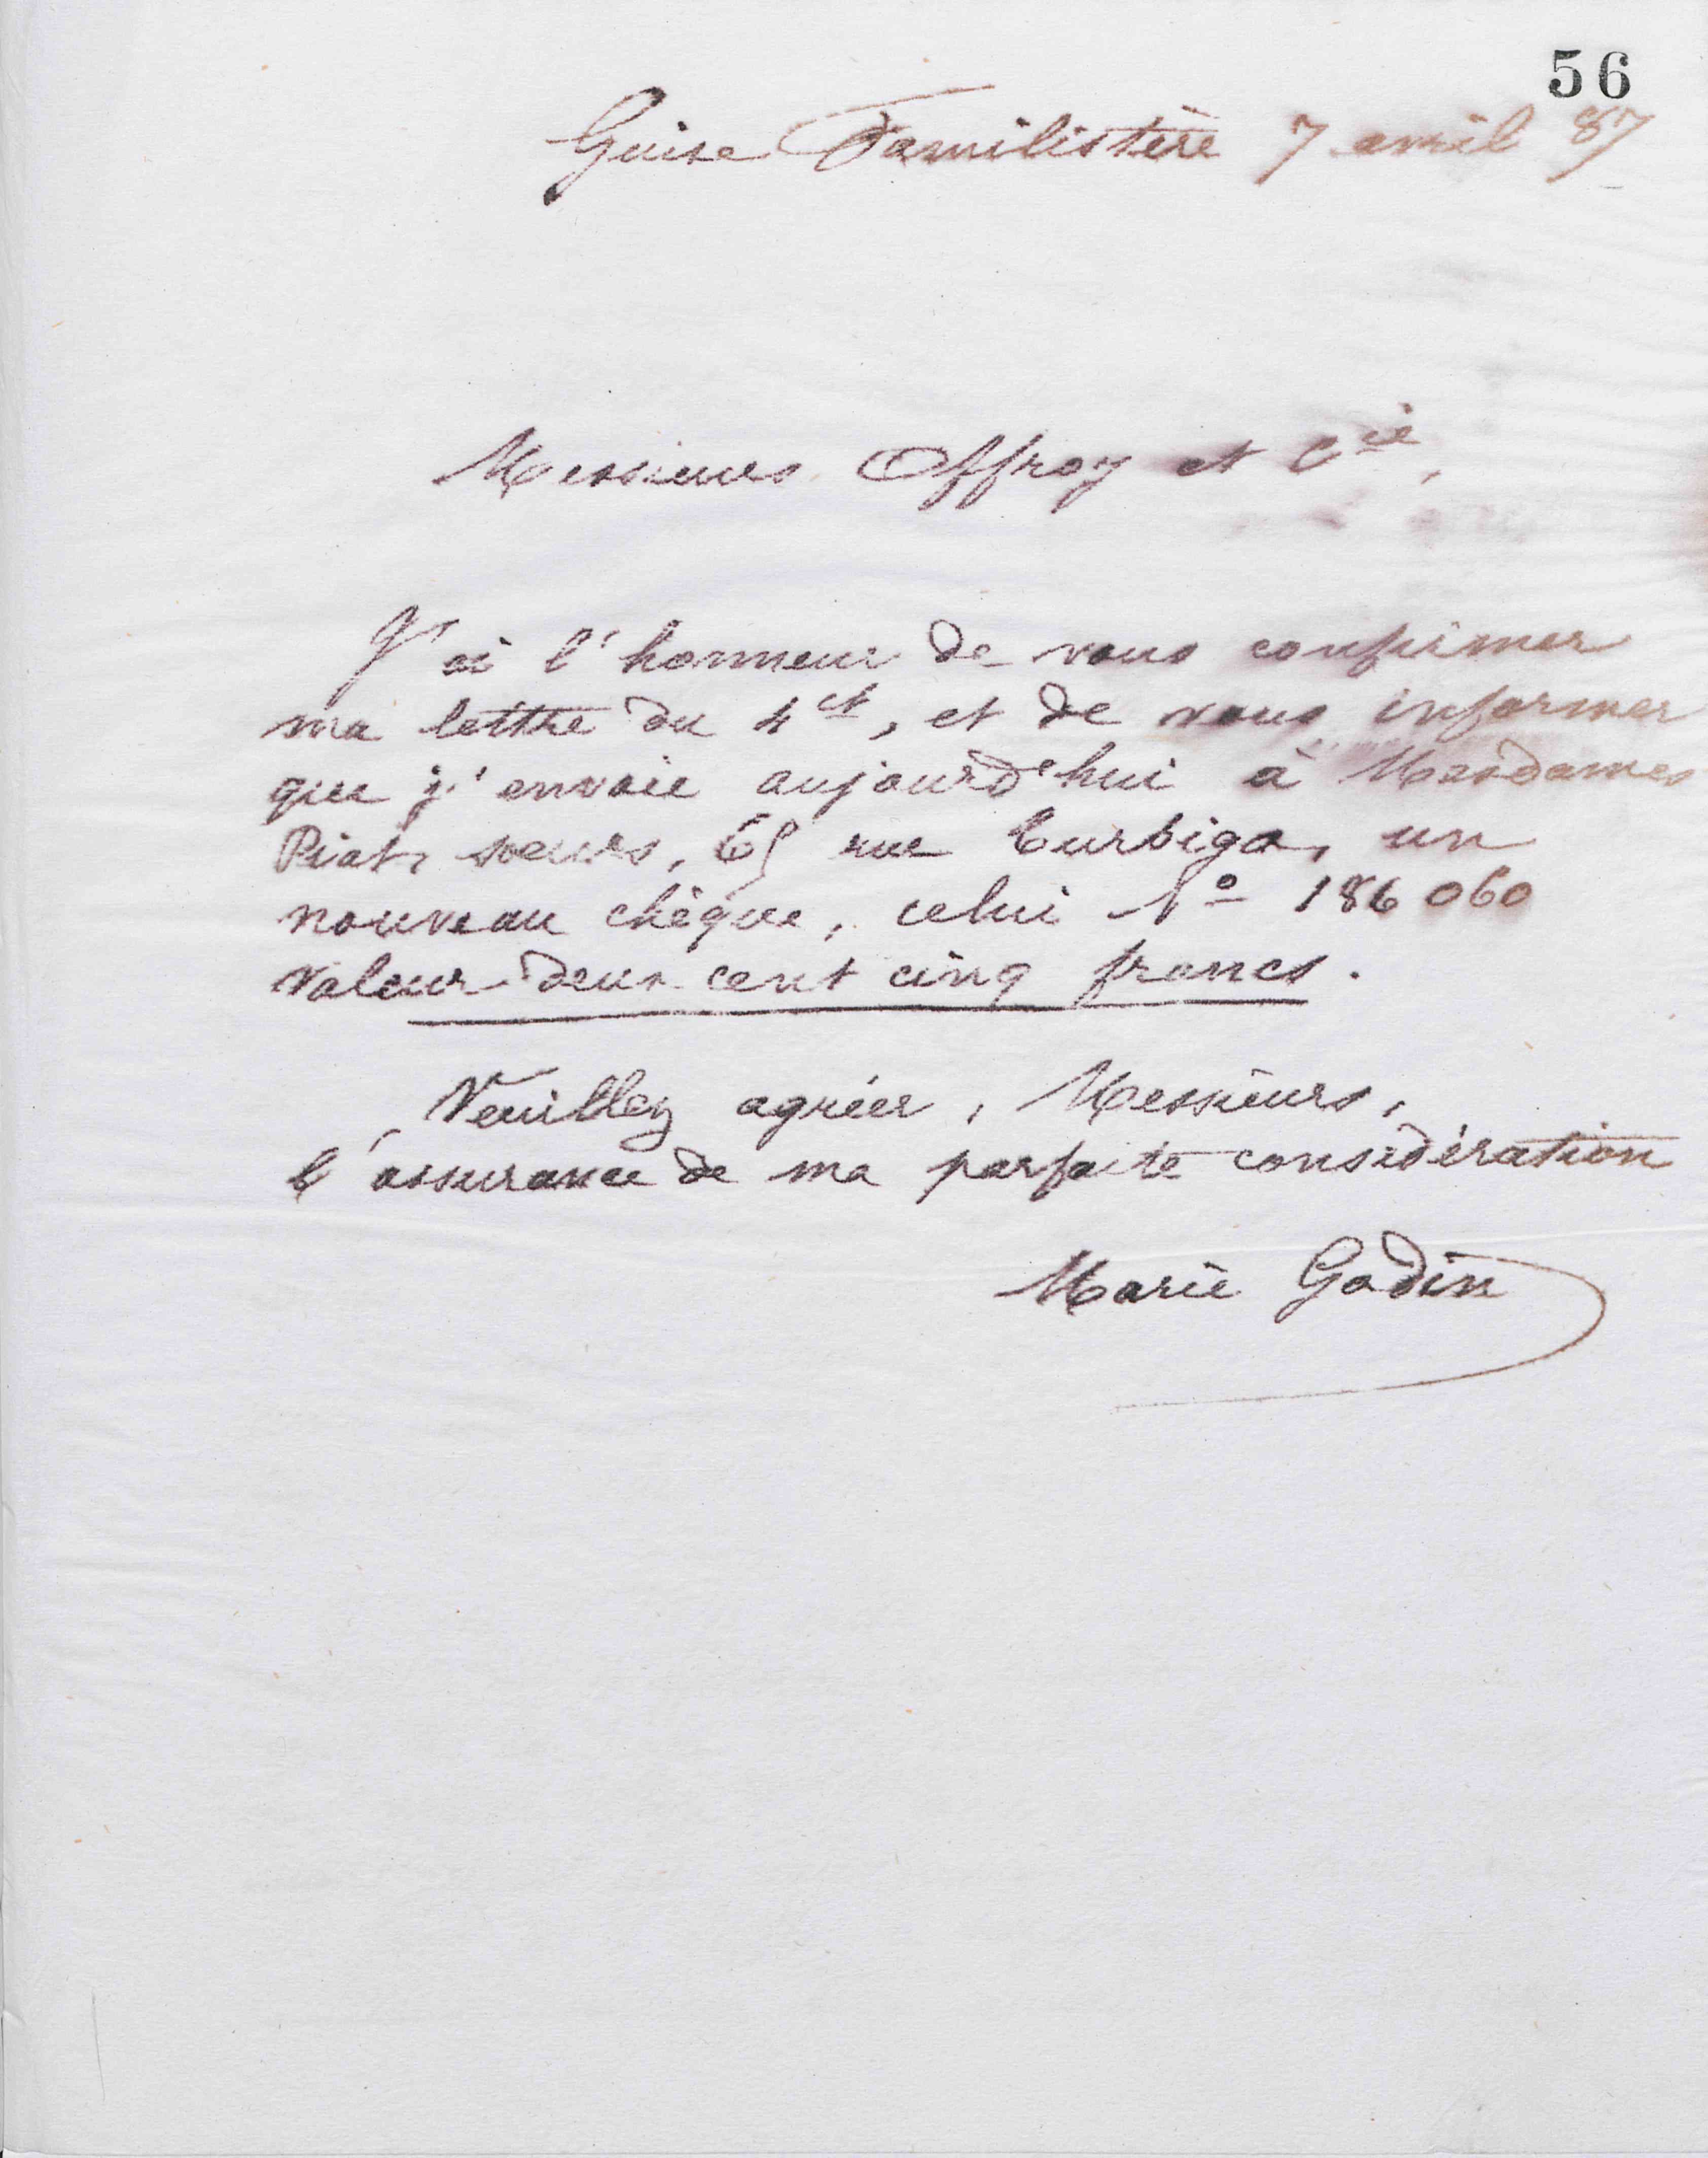 56
Guise Familistère 7 avril 87
Messieurs Offroy et Cie,
J'ai l'honneur de vous confirmer
ma lettre du 4 ct, et de vous informer
que j'envoie aujourd'hui à Mesdames
Piat, sœurs, 65 rue Turbigo, un
nouveau chèque, celui No 186 060
valeur deux cent cinq francs.
Veuillez agréer, Messieurs,
l'assurance de ma parfaite considération
Marie Godin